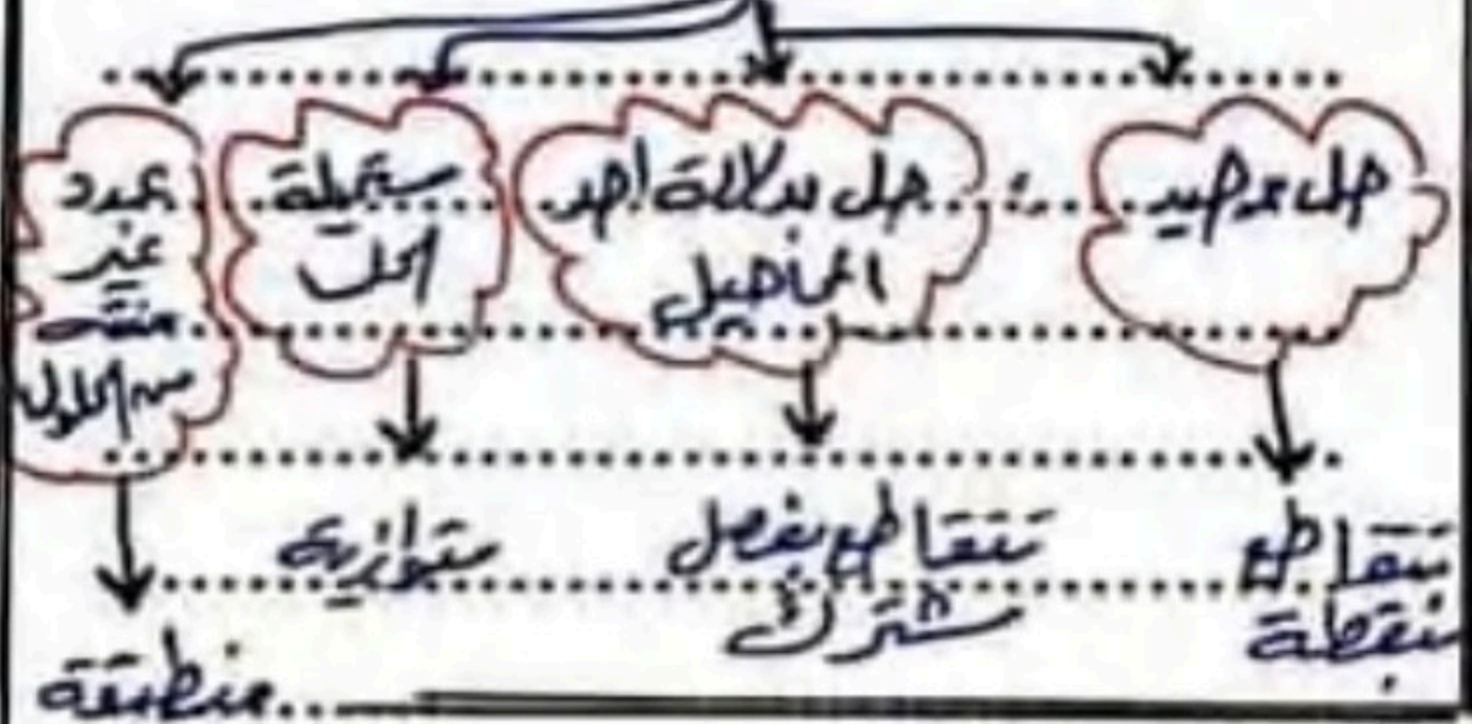 حل وحيد
حل بدلالة احد
المجاهيل
مستحيلة
الحل
عدد
غير
منته
من الحلول
تتقاطع
بنقطة
تتقاطع بفصل
مشترك
متوازية
منطبقة